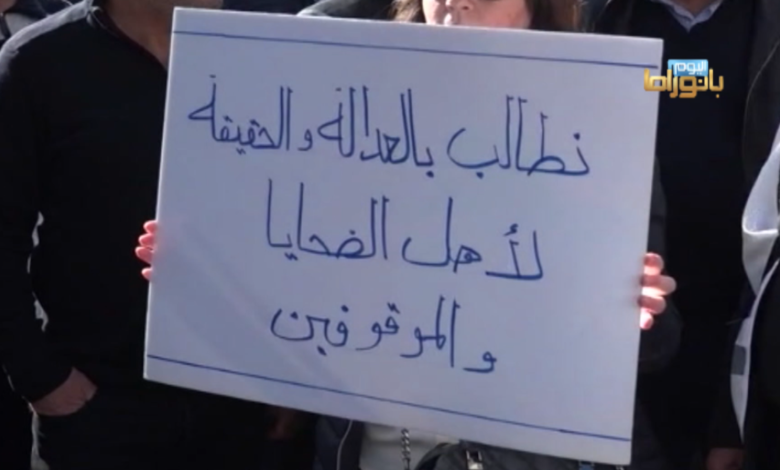 اليوم
بانوراما
نطالب بالعدالة والحقيقة
لأهل الضحايا
والموقوفين